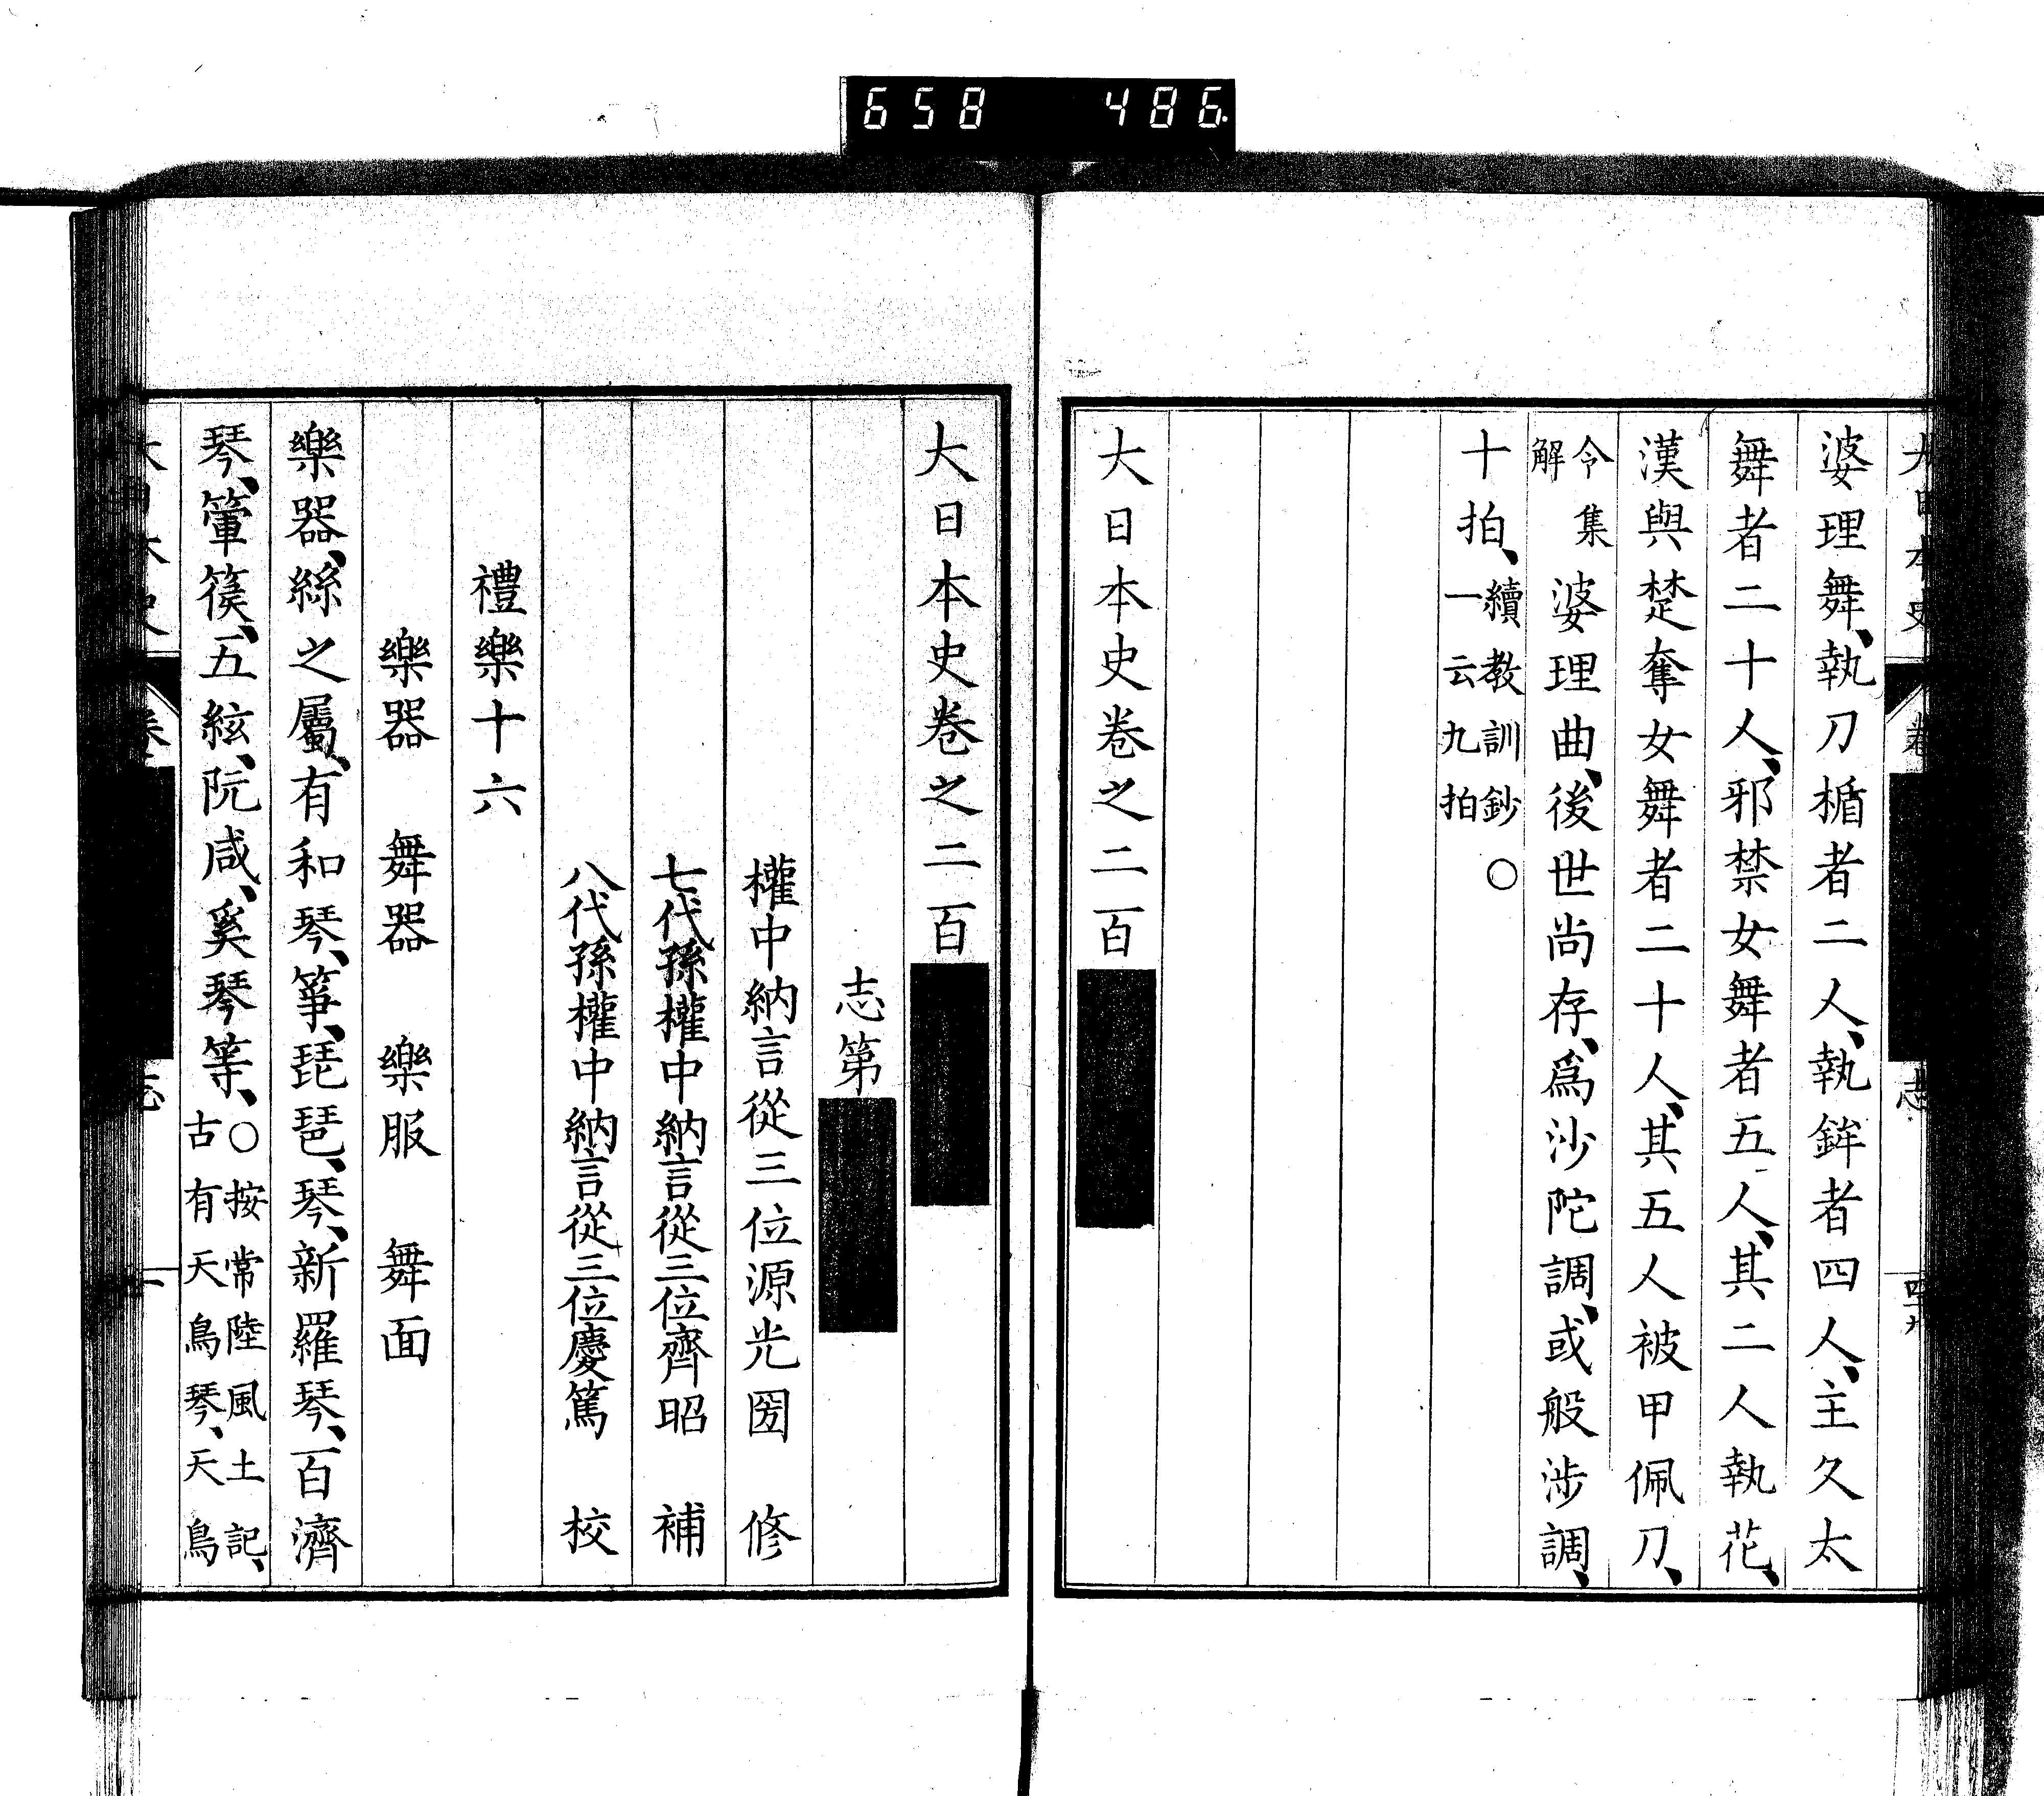 658 486
婆理舞、執刀楯者二人、執鉾者四人、主久太
舞者二十人、邪禁女舞者五人、其二人執花、
漢與楚奪女舞者二十人、其五人被甲佩刀、
令集解 婆理曲、後世尚存、爲沙陀調、或般涉調、
十拍、續教訓鈔○一云九拍
大日本史卷之二百
大日本史卷之二百
志第
權中納言從三位源光圀 修
七代孫權中納言從三位齊昭 補
八代孫權中納言從三位慶篤 校
禮樂十六
樂器 舞器 樂服 舞面
樂器、絲之屬、有和琴、箏、琵琶、琴、新羅琴、百濟
琴、箜篌、五絃、阮咸、奚琴等、○按常陸風土記、古有天鳥琴、天鳥